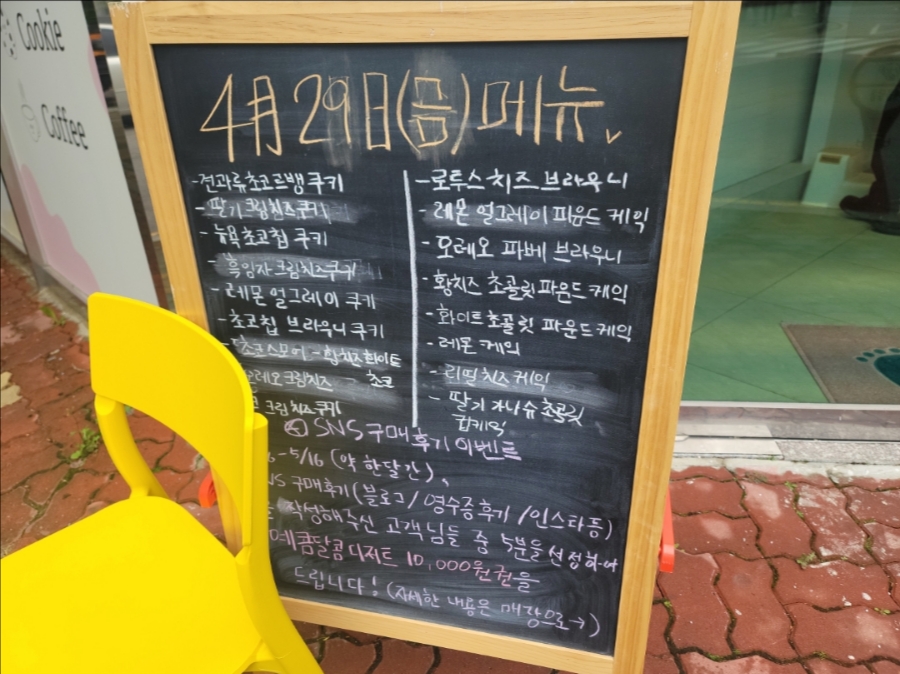 Cookie
Coffee
4月 29日(금) 메뉴
-견과류초코르뱅쿠키
- 딸기크림치즈쿠키
- 뉴욕초코칩 쿠키
- 흑임자크림치즈쿠키
- 레몬 얼그레이 쿠키
- 초코칩 브라우니 쿠키
- 초코스모어 - 황치즈화이트
오레오크림치즈 - 초코
크림치즈쿠키
- 로투스치즈 브라우니
- 레몬 얼그레이 파운드 케익
- 오레오 파베 브라우니
- 황치즈 초콜릿파운드케익
- 화이트초콜릿 파운드케익
- 레몬 케익
- 리얼치즈케익
- 딸기 가나슈초콜릿
컵케익
SNS구매후기이벤트
-5/16 (약 한달간)
구매후기(블로그/영수증후기/인스타등)
작성해주신 고객님들 중 5분을선정하여
달콤디저트 10,000원권을
드립니다! (자세한 내용은 매장으로→)